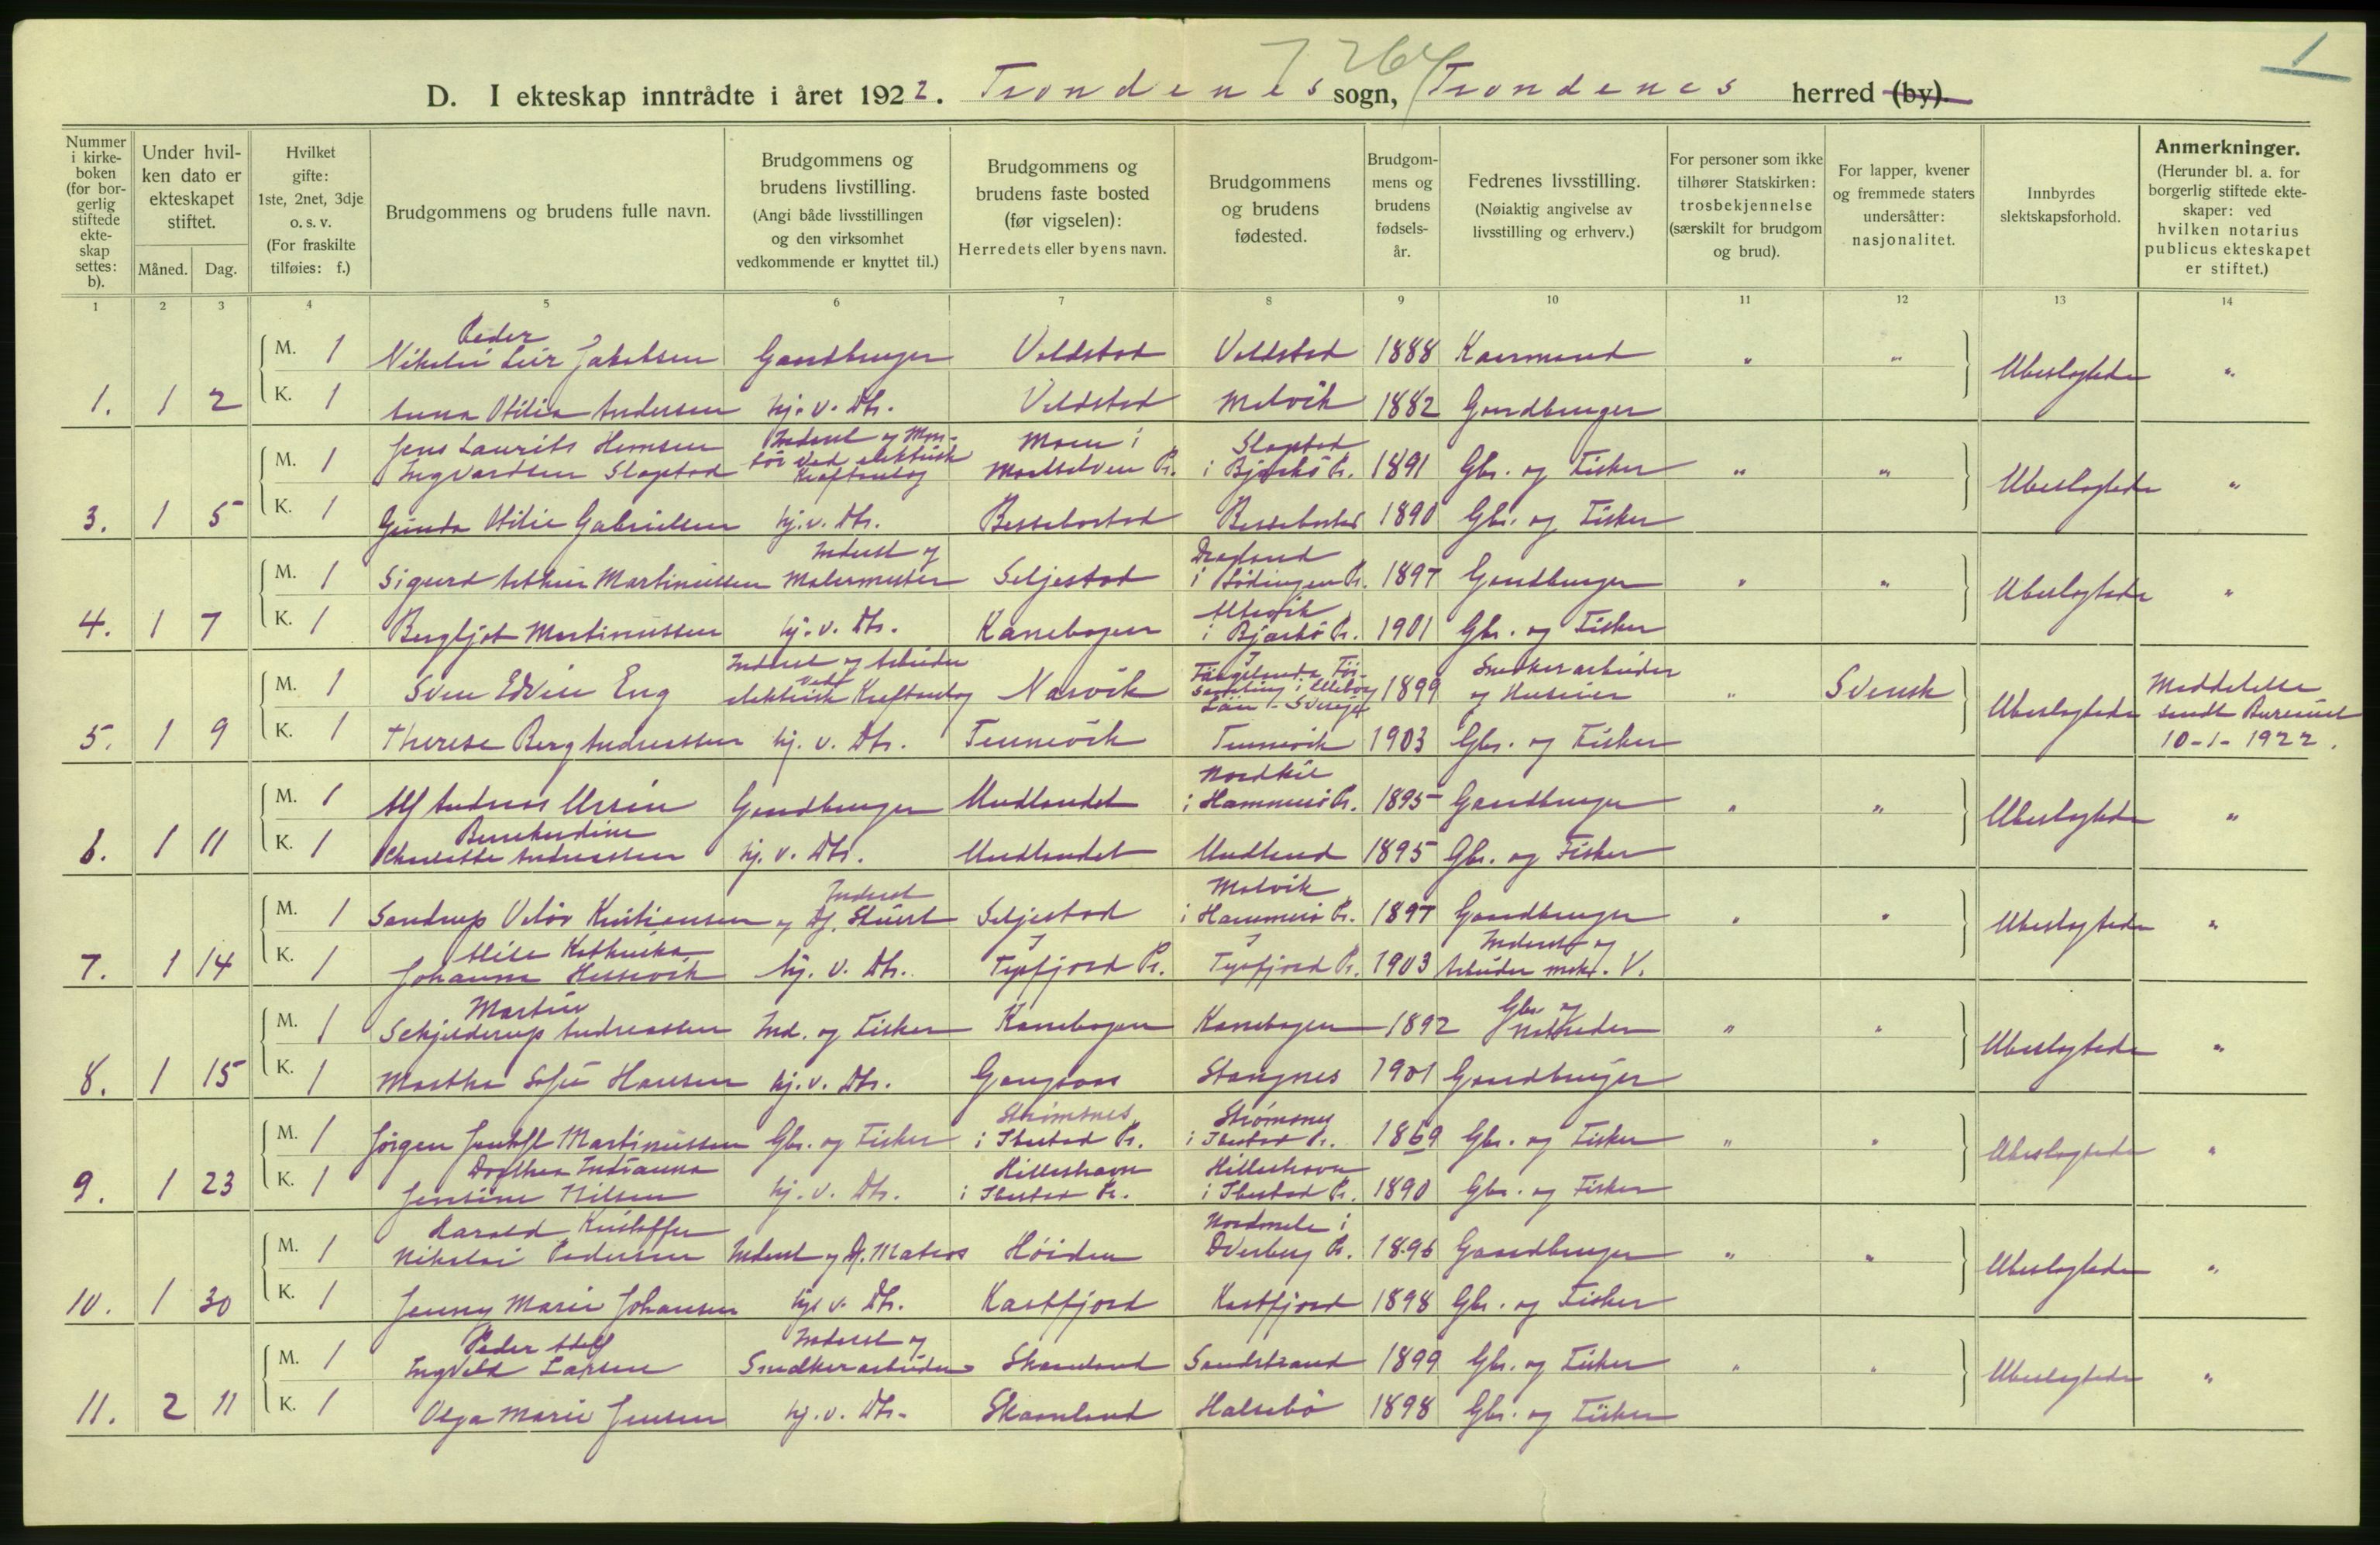 1
7264
D. I ekteskap inntrådte i året 1922. Trondenes sogn, Trondenes herred (by).
Nummer i kirke-boken (for bor-gerlig stiftede ekte-skap settes: b).
Under hvil-ken dato er ekteskapet stiftet.
Måned. Dag.
Hvilket gifte: 1ste, 2net, 3dje o. s. v. (For fraskilte tilføies: f.)
Brudgommens og brudens fulle navn.
Brudgommens og brudens livstilling. (Angi både livsstillingen og den virksomhet vedkommende er knyttet til.)
Brudgommens og brudens faste bosted (før vigselen): Herredets eller byens navn.
Brudgommens og brudens fødested.
Brudgom-mens og brudens fødsels-år.
Fedrenes livsstilling. (Nøiaktig angivelse av livsstilling og erhverv.)
For personer som ikke tilhører Statskirken: trosbekjennelse (særskilt for brudgom og brud).
For lapper, kvener og fremmede staters undersåtter: nasjonalitet.
Innbyrdes slektskapsforhold.
Anmerkninger. (Herunder bl. a. for borgerlig stiftede ekte-skaper: ved hvilken notarius publicus ekteskapet er stiftet.)
1 2 3 4 5 6 7 8 9 10 11 12 13 14
Peder
M. 1 Nikolai Leir Jakobsen Gaardbruger Voldstad Voldstad 1888 Kaarmand " "
1. 1 2 K. 1 Anna Otilia Andersen hj. v. Dtr. Voldstad Melvik 1882 Gaardbruger Ubeslegtede "
Jens Laurits Hemsen Inderst og Mon- Moen i Slagstad
M. 1 Ingvardsen Slagstad tör ved elektrisk Kraftanlæg Maalselven Pr. i Bjarkö Pr. 1891 Gbr. og Fisker " "
3. 1 5 K. 1 Gunda Otilie Gabrielsen hj. v. Dtr. Bessebostad Bessebostad 1890 Gbr. og Fisker Ubeslegtede "
Inderst og Dragland
M. 1 Sigurd Arthur Martinussen Malermester Seljestad i Lödingen Pr. 1897 Gaardbruger " "
Altevik
4. 1 7 K. 1 Bergljot Martinussen hj. v. Dtr. Kanebogen i Bjarkö Pr. 1901 Gbr. og Fisker Ubeslegtede "
Inderst og Arbeider ved
M. 1 Sven Edvin Eng elektrisk Kraftanlæg Narvik Län i Sverige 1899 Snedkerarbeider og Huseier " Svensk
5. 1 9 K. 1 Therese Berg Andreassen hj. v. Dtr. Tennevik Tennevik 1903 Gbr. og Fisker Ubeslegtede Meddelelse sendt Bureauet 10-1-1922.
Nordkil
M. 1 Alf Andreas Ursin Gaardbruger Undlandet i Hammerö Pr. 1895 Gaardbruger " "
6. 1 11 K. 1 Charlotte Andreassen hj. v. Dtr. Undlandet Undland 1895 Gbr. og Fisker Ubeslegtede "
Inderst Molvik
M. 1 Sandrup Velör Kristiansen og Dj. Stuert Seljestad i Hammerö Pr. 1897 Gaardbruger " "
Alise Kathinka Inderst og
7. 1 14 K. 1 Johanna Hessevik hj. v. Dtr. Tysfjord Pr. Tysfjord Pr. 1903 Arbeider mek. V. Ubeslegtede "
Martin Gbr. og
M. 1 Schjelderup Andreassen Ind. og Fisker Kanebogen Kanebogen 1892 Notbreder " "
8. 1 15 K. 1 Martha Sofie Hansen hj. v. Dtr. Gangsaas Stangnes 1901 Gaardbruger Ubeslegtede "
Strömsnes Strömsnes
M. 1 Jörgen Jentoft Martinussen Gbr. og Fisker i Ibestad Pr. i Ibestad Pr. 1869 Gbr. og Fisker " "
Dorthea Indianna Hilleshavn Hilleshavn
9. 1 23 K. 1 Jensine Nilsen hj. v. Dtr. i Ibestad Pr. i Ibestad Pr. 1890 Gbr. og Fisker Ubeslegtede "
Harald Kristoffer Nordmele i
M. 1 Nikolai Pedersen Inderst og Dj. Matros Höiden Dverberg Pr. 1896 Gaardbruger " "
10. 1 30 K. 1 Jenny Marie Johansen hj. v. Dtr. Kastfjord Kastfjord 1898 Gbr. og Fisker Ubeslegtede "
Peder Adolf Inderst og
M. 1 Ingvald Larsen Snedkerarbeider Skaanland Sandstrand 1899 Gbr. og Fisker " "
11. 2 11 K. 1 Olga Marie Jensen hj. v. Dtr. Skaanland Halsebö 1898 Gbr. og Fisker Ubeslegtede "